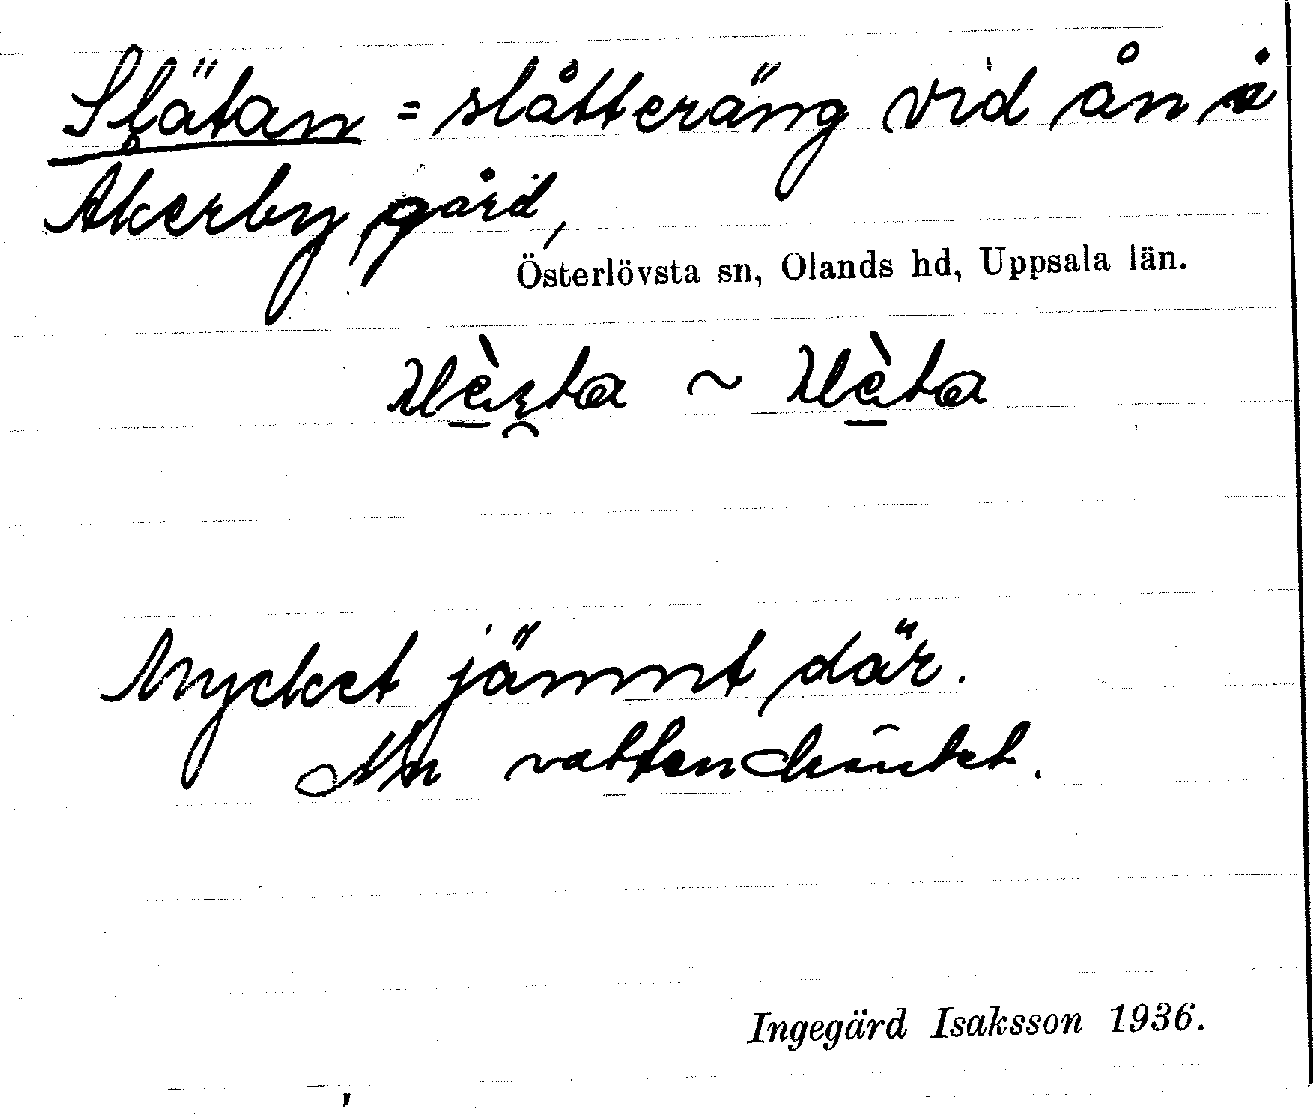 Slätan = slåtteräng vid ån i
Åkerby gård,
Österlövsta sn, Olands hd, Uppsala län.
~
Mycket jämnt där.
vattendränkt.
Ingegärd Isaksson 1936.